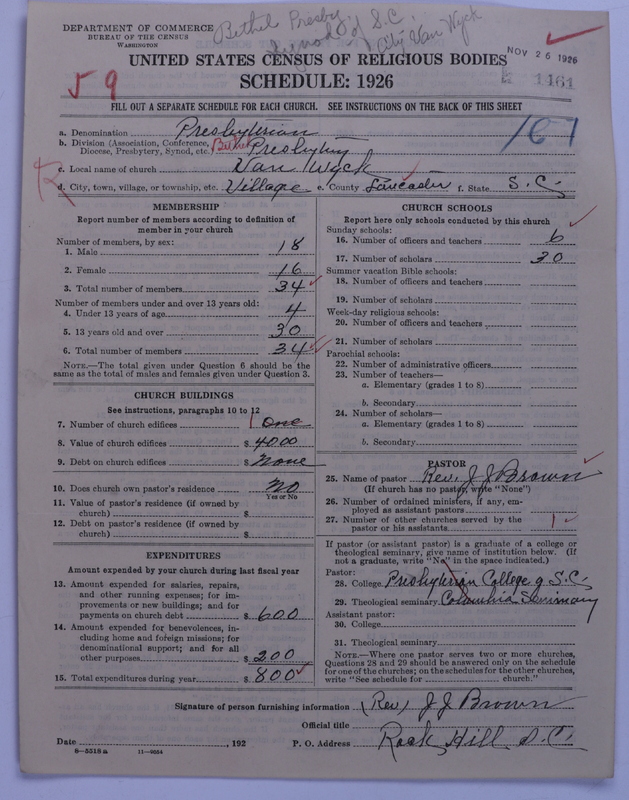 DEPARTMENT OF COMMERCE
BUREAU OF THE CENSUS
WASHINGTON
Bethel Presby
Synod of S.C.
City Van Wyck
NOV 26 1926
1461
UNITED STATES CENSUS OF RELIGIOUS BODIES
SCHEDULE: 1926
59
FILL OUT A SEPARATE SCHEDULE FOR EACH CHURCH. SEE INSTRUCTIONS ON THE BACK OF THIS SHEET
167
a. Denomination Presbyterian
b. Division (Association, Conference, Diocese, Presbytery, Synod, etc.) Bethel Presbytery
c. Local name of church Van Wyck
d. City, town, village, or township, etc. Village e. County Lancaster f. State S.C.
MEMBERSHIP
Report number of members according to definition of
member in your church
Number of members, by sex:
1. Male 18
2. Female 16
3. Total number of members 34
Number of members under and over 13 years old:
4. Under 13 years of age 4
5. 13 years old and over 30
6. Total number of members 34
NOTE.—The total given under Question 6 should be the
same as the total of males and females given under Question 3.
CHURCH BUILDINGS
See instructions, paragraphs 10 to 12
7. Number of church edifices 1 One
8. Value of church edifices $ 4000
9. Debt on church edifices $ None
10. Does church own pastor's residence No
Yes or No
11. Value of pastor's residence (if owned by
church) $
12. Debt on pastor's residence (if owned by
church) $
EXPENDITURES
Amount expended by your church during last fiscal year
13. Amount expended for salaries, repairs,
and other running expenses; for im-
provements or new buildings; and for
payments on church debt $ 600
14. Amount expended for benevolences, in-
cluding home and foreign missions; for
denominational support; and for all
other purposes $ 200
15. Total expenditures during year $ 800
CHURCH SCHOOLS
Report here only schools conducted by this church
Sunday schools:
16. Number of officers and teachers 6
17. Number of scholars 30
Summer vacation Bible schools:
18. Number of officers and teachers
19. Number of scholars
Week-day religious schools:
20. Number of officers and teachers
21. Number of scholars
Parochial schools:
22. Number of administrative officers
23. Number of teachers—
a. Elementary (grades 1 to 8)
b. Secondary
24. Number of scholars—
a. Elementary (grades 1 to 8)
b. Secondary
PASTOR
25. Name of pastor Rev. J J Brown
(If church has no pastor, write "None")
26. Number of ordained ministers, if any, em-
ployed as assistant pastors
27. Number of other churches served by the
pastor or his assistants 1
If pastor (or assistant pastor) is a graduate of a college or
theological seminary, give name of institution below. (If
not a graduate, write "No" in the space indicated.)
Pastor:
28. College Presbyterian College of S.C.
29. Theological seminary Columbia Seminary
Assistant pastor:
30. College
31. Theological seminary
NOTE.—Where one pastor serves two or more churches,
Questions 28 and 29 should be answered only on the schedule
for one of the churches; on the schedules for the other churches,
write "See schedule for church."
Signature of person furnishing information (Rev) J J Brown
Official title
Date , 192 P. O. Address Rock Hill S.C.
8—5518 a 11—9864